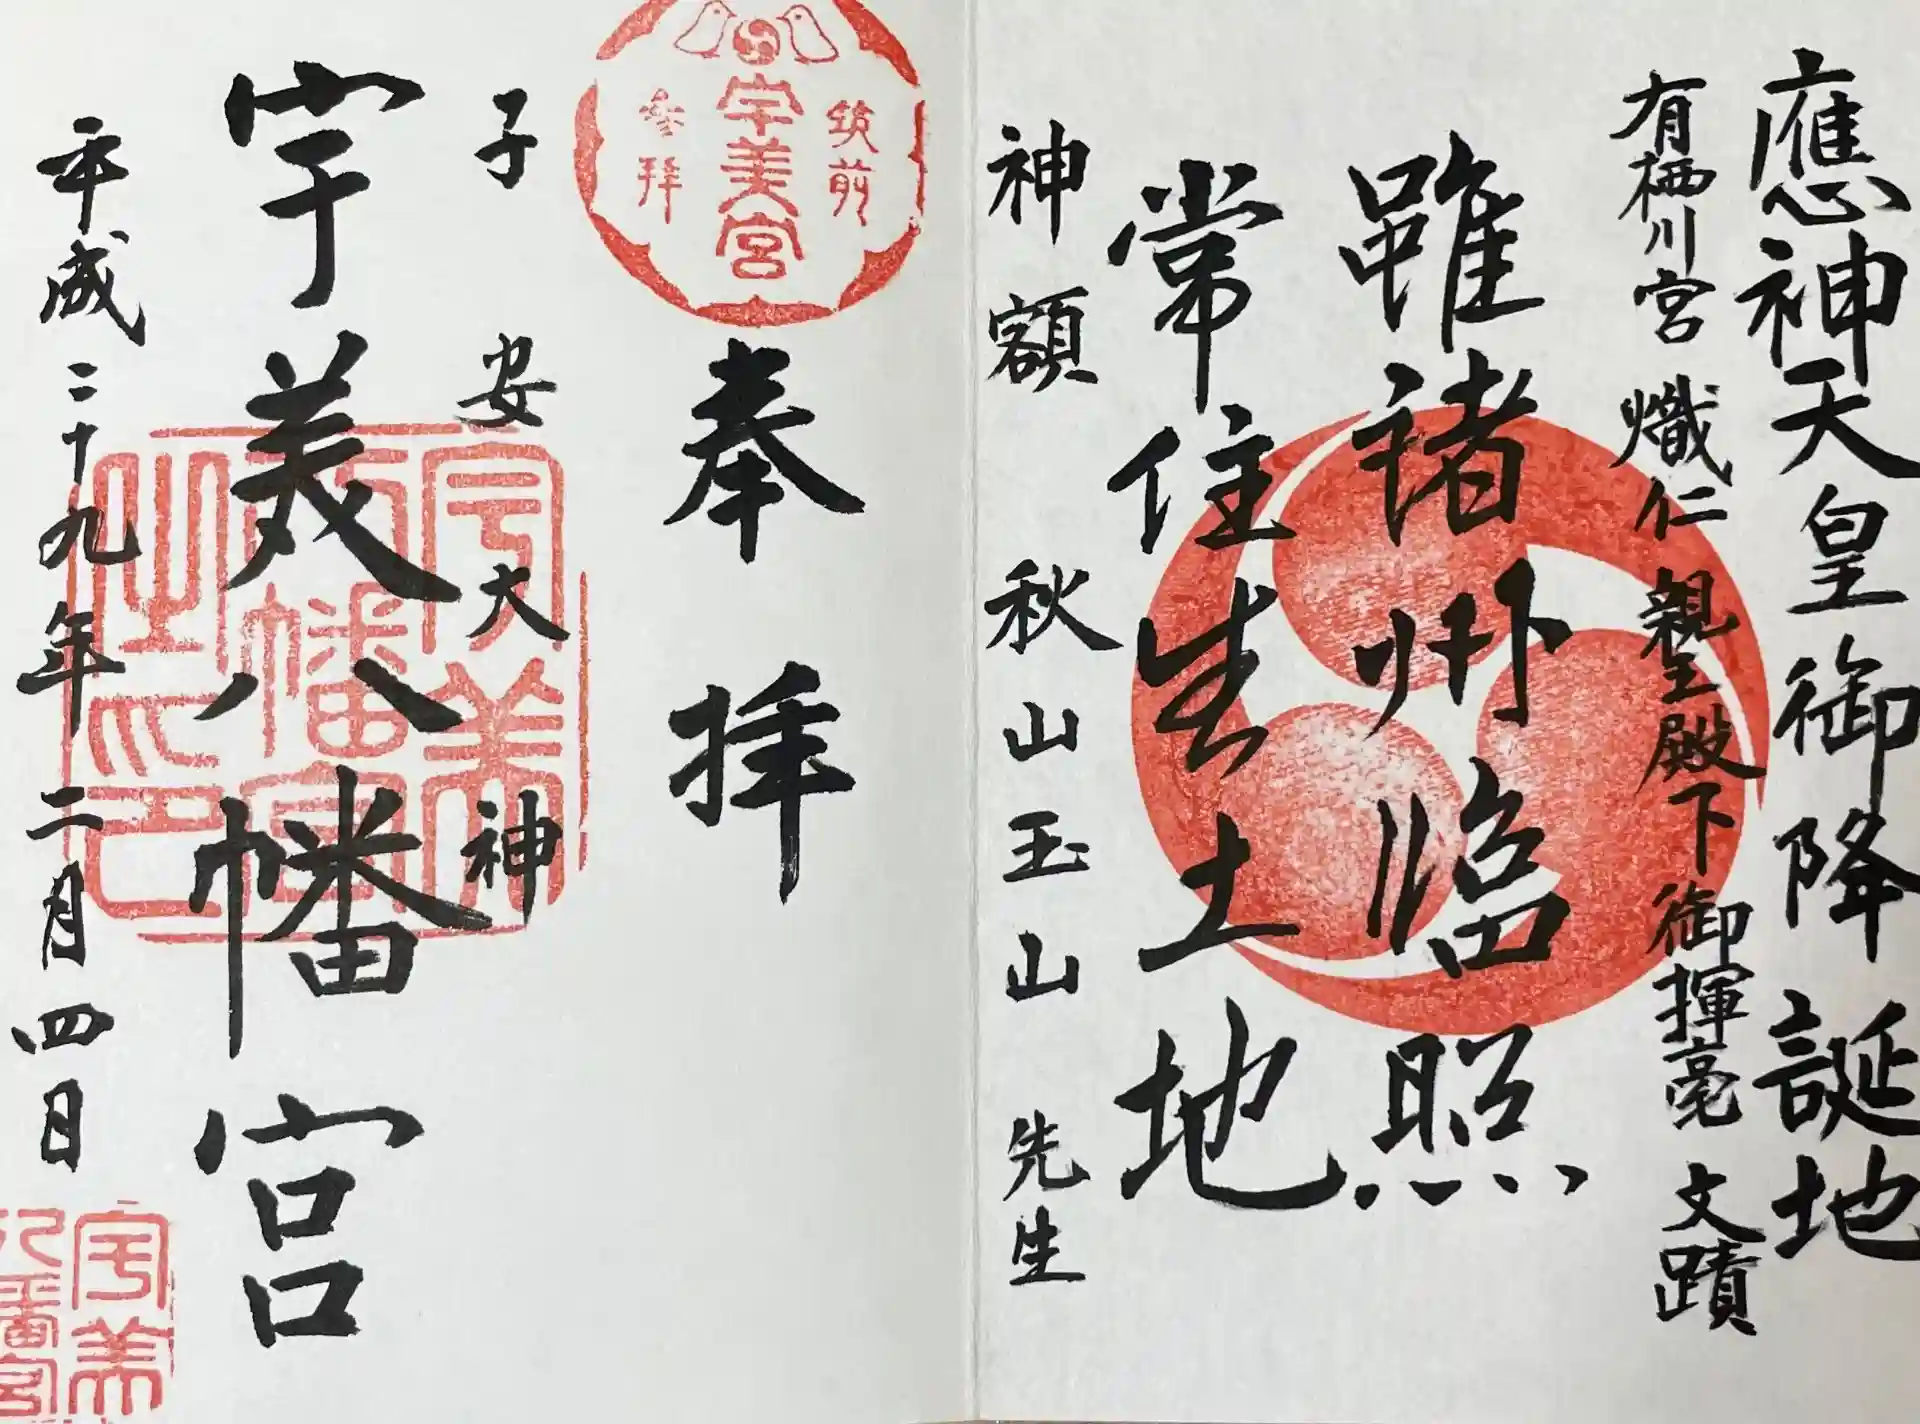 應神天皇御降誕地
有栖川宮 熾仁親王殿下御揮亳 文蹟
雖諸州臨照
常住生土地
神額 秋山玉山 先生
筑前
宇美宮
参拜
奉拝
子安大神
宇美八幡宮
平成二十九年二月四日
宇美
八幡宮
之印
宇美
八幡宮